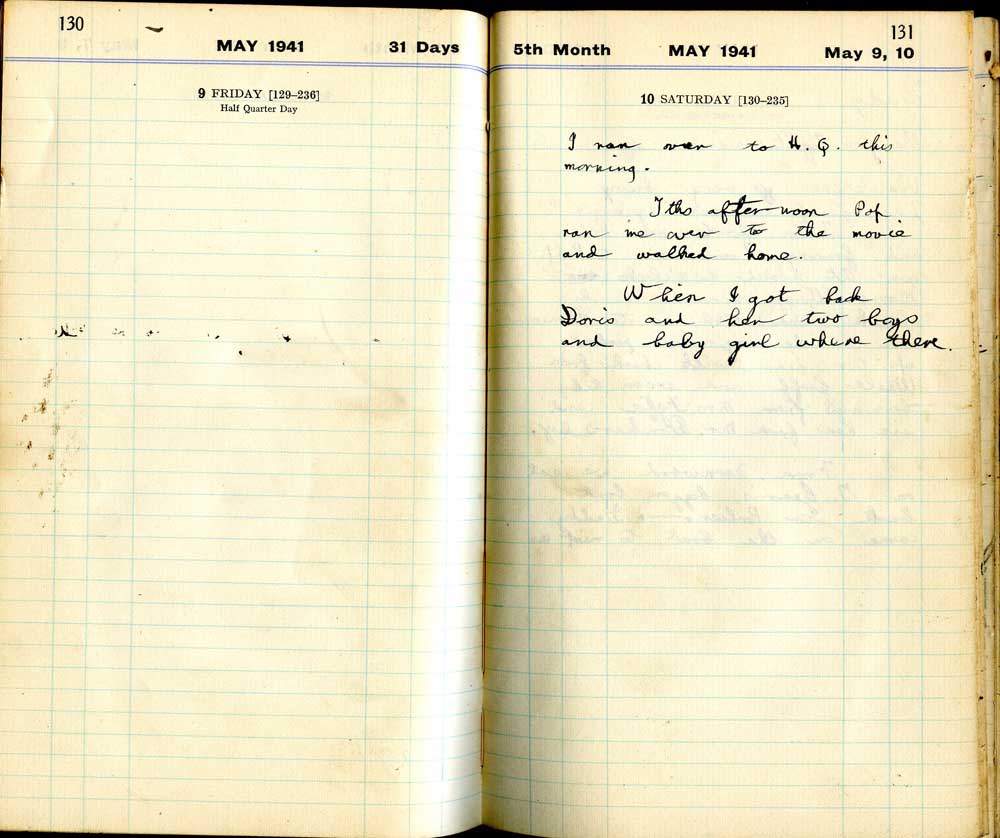 130
MAY 1941 31 Days
9 FRIDAY [129–236]
Half Quarter Day
131
5th Month MAY 1941 May 9, 10
10 SATURDAY [130–235]
I ran over to H. Q. this
morning.
Iths afternoon Pop
ran me over to the movie
and walked home.
When I got back
Doris and her two boys
and baby girl where there.